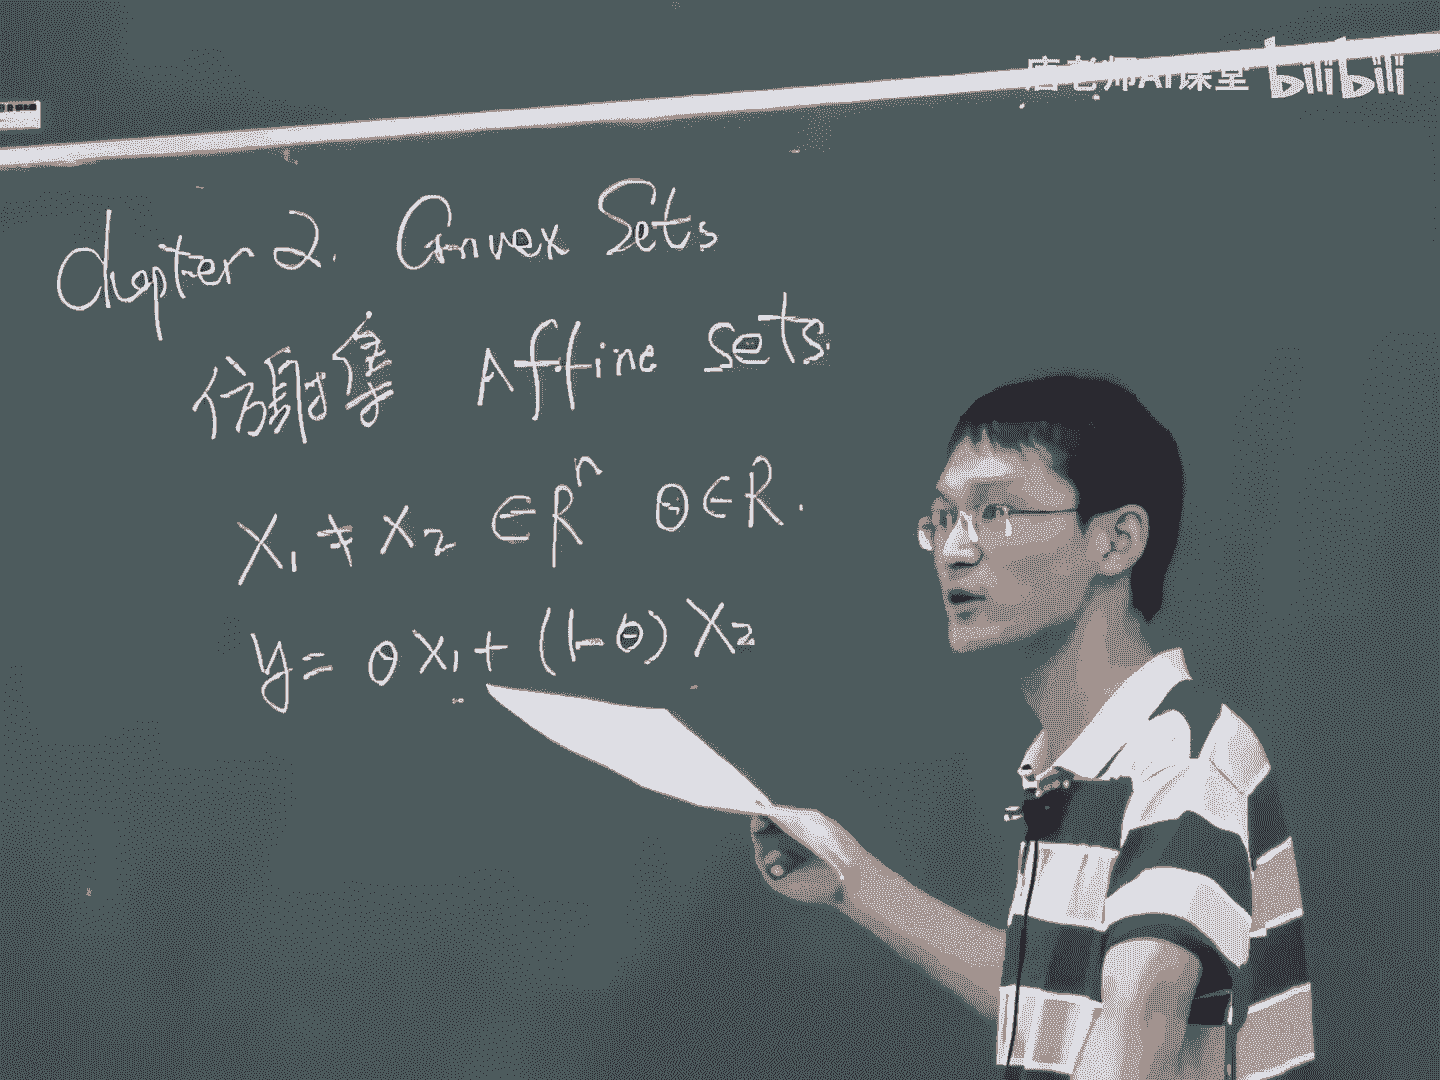 唐老师AI课堂 bilibili
Chapter 2. Convex Sets
仿射集 Affine sets.
X₁ ≠ X₂ ∈ Rⁿ θ ∈ R.
y = θ X₁ + (1-θ) X₂